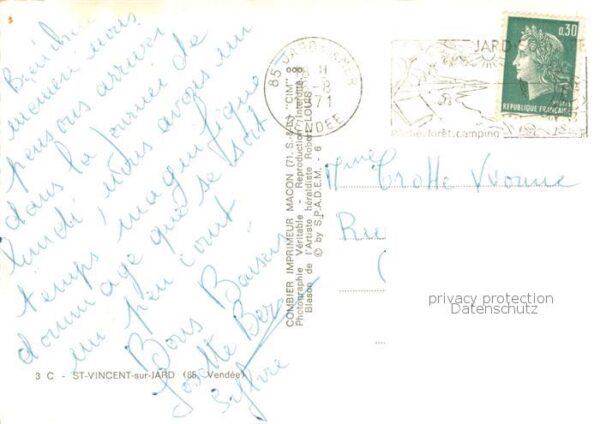 Bien chère
mement nous
pensons arriver
dans la journée de
lundi, nous avons un
temps magnifique
dommage que se soit
un peu court
Bons Baisers
Josette
Sylvie
3 C - ST-VINCENT-sur-JARD (85, Vendée)
COMBIER IMPRIMEUR MACON (71, S.-&-L.) "CIM"
Photographie Véritable - Reproduction Interdite
Blason de l'Artiste héraldiste Robert LOUIS
© by S.P.A.D.E.M. - 6
85 JARD-S-MER
VENDEE
JARD
Pêche, forêt, camping
0,30
REPUBLIQUE FRANÇAISE
POSTES
Mme Trotte Yvonne
privacy protection
Datenschutz